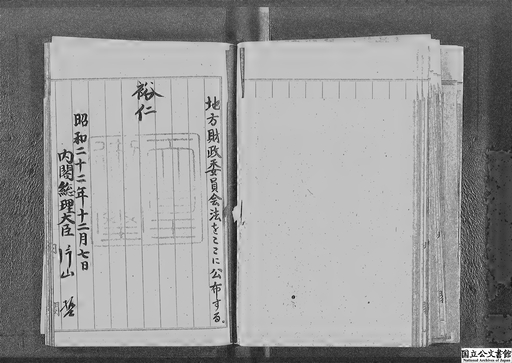 地方財政委員会法をここに公布する
裕仁
昭和二十二年十二月七日
内閣総理大臣 片山 哲
国立公文書館
National Archives of Japan